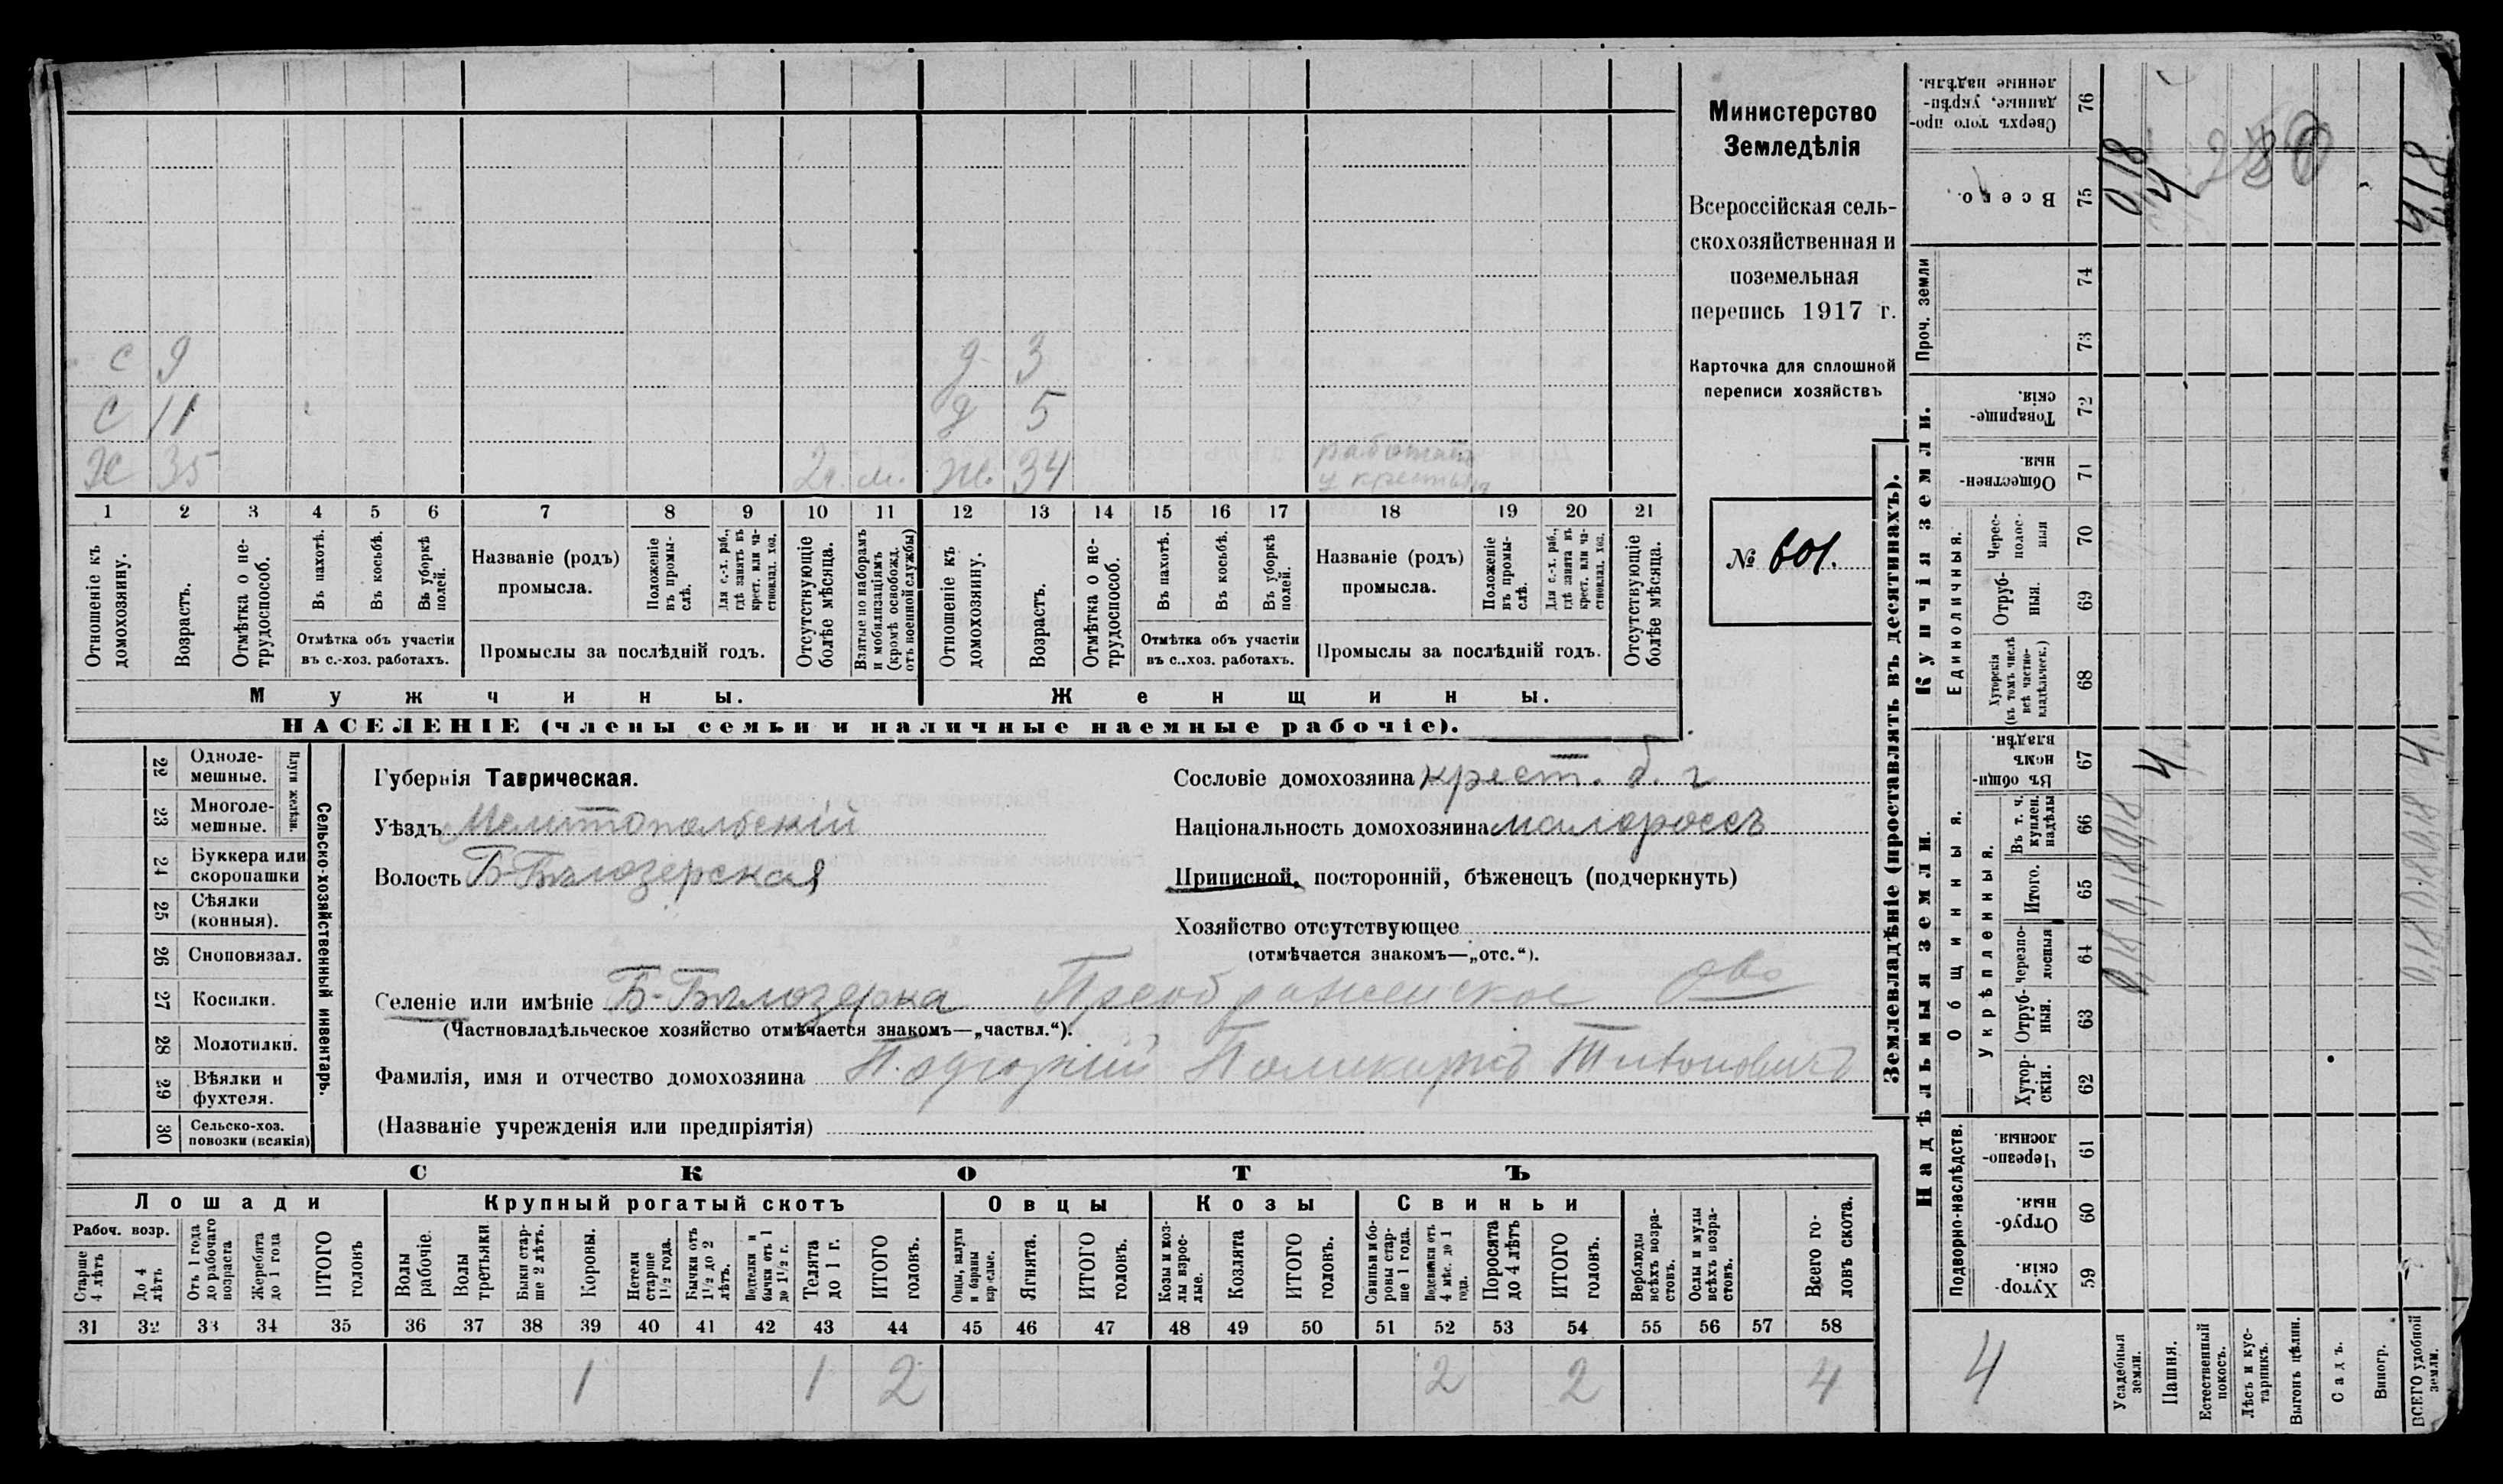 с 9 д 3
с 11 д 5
Х 35 2 г. м. ж. 34 работает
у крестьян
1 2 3 4 5 6 7 8 9 10 11 12 13 14 15 16 17 18 19 20 21
Отношеніе къ домохозяину.
Возрастъ.
Отмѣтка о не-трудоспособ.
Въ пахотѣ.
Въ косьбѣ.
Въ уборкѣ полей.
Отмѣтка объ участіи
въ с.-хоз. работахъ.
Названіе (родъ)
промысла.
Положеніе въ промы-слѣ.
Для с.-х. раб., гдѣ занятъ въ крест. или ча-стновлад. хоз.
Промыслы за послѣдній годъ.
Отсутствующіе болѣе мѣсяца.
Взятые по наборамъ и мобилизаціямъ (кромѣ освобожд. отъ военной службы)
Отношеніе къ домохозяину.
Возрастъ.
Отмѣтка о не-трудоспособ.
Въ пахотѣ.
Въ косьбѣ.
Въ уборкѣ полей.
Отмѣтка объ участіи
въ с..хоз. работахъ.
Названіе (родъ)
промысла.
Положеніе въ промы-слѣ.
Для с.-х. раб., гдѣ занята въ крест. или ча-стновлад. хоз.
Промыслы за послѣдній годъ.
Отсутствующіе болѣе мѣсяца.
Мужчины. Женщины.
НАСЕЛЕНІЕ (члены семьи и наличные наемные рабочіе).
Министерство
Земледѣлія
Всероссійская сель-
скохозяйственная и
поземельная
перепись 1917 г.
Карточка для сплошной
переписи хозяйствъ
№ 601.
22 Одноле-мешные.
23 Многоле-мешные.
Плуги желѣзн.
24 Буккера или скоропашки
25 Сѣялки (конныя).
26 Сноповязал.
27 Косилки.
28 Молотилки.
29 Вѣялки и фухтеля.
30 Сельско-хоз. повозки (всякія)
Сельско-хозяйственный инвентарь.
Губернія Таврическая.
Уѣздъ Мелитопольскій
Волость Б-Бѣлозерская
Сословіе домохозяина крест. б. г
Національность домохозяина малороссъ
Приписной, посторонній, бѣженецъ (подчеркнуть)
Хозяйство отсутствующее
(отмѣчается знакомъ—„отс.“).
Селеніе или имѣніе Б-Бѣлозерка Преображенское о-во
(Частновладѣльческое хозяйство отмѣчается знакомъ—„частвл.“).
Фамилія, имя и отчество домохозяина Поликарпъ Титовичъ
(Названіе учрежденія или предпріятія)
СКОТЪ
Лошади Крупный рогатый скотъ Овцы Козы Свиньи
Рабоч. возр.
Старше 4 лѣтъ
До 4 лѣтъ
Отъ 1 года до рабочаго возраста
Жеребята до 1 года
ИТОГО головъ
Волы рабочіе.
Волы третьяки
Быки стар-ше 2 лѣтъ.
Коровы.
Нетели старше 1½ года.
Бычки отъ 1½ до 2 лѣтъ.
Подтелки и бычки отъ 1 до 1½ г.
Телята до 1 г.
ИТОГО головъ.
Овцы, валухи и бараны взрослые.
Ягнята.
ИТОГО головъ.
Козы и коз-лы взрос-лые.
Козлята
ИТОГО головъ.
Свиньи и бо-ровы стар-ше 1 года.
Подсвинки отъ 4 мѣс. до 1 года.
Поросята до 4 лѣтъ
ИТОГО головъ.
Верблюды всѣхъ возра-стовъ.
Ослы и мулы всѣхъ возра-стовъ.
Всего го-ловъ скота.
31 32 33 34 35 36 37 38 39 40 41 42 43 44 45 46 47 48 49 50 51 52 53 54 55 56 57 58
1 1 2 2 2 4
Землевладѣніе (проставлять въ десятинахъ).
Надѣльныя земли. Купчія земли. Проч. земли
Подворно-наслѣдств. Общинныя. Единоличныя.
Укрѣпленныя.
Хутор-скія. 59
Отруб-ныя. 60
Черезпо-лосныя. 61
Хутор-скія. 62
Отруб-ныя. 63
Черезпо-лосныя 64
Итого. 65
Въ т. ч. куплен. надѣлы 66
Въ общи-номъ владѣн. 67
Хуторскія (въ томъ числѣ всѣ частно-владѣльческ.) 68
Отруб-ныя. 69
Черес-полос-ныя 70
Обществен-ныя. 71
Товарище-скія. 72
73
74
Всего. 75
Сверхъ того про-данные, укрѣп-ленные надѣлы. 76
4
Усадебныя земли. 0,18 0,18 0,18 0,18
Пашня. 4 4
Естественный покосъ.
Лѣсъ и кус-тарникъ.
Выгонъ цѣлин.
Садъ.
Виногр.
ВСЕГО удобной земли. 0,18 0,18 0,18 4 4,18